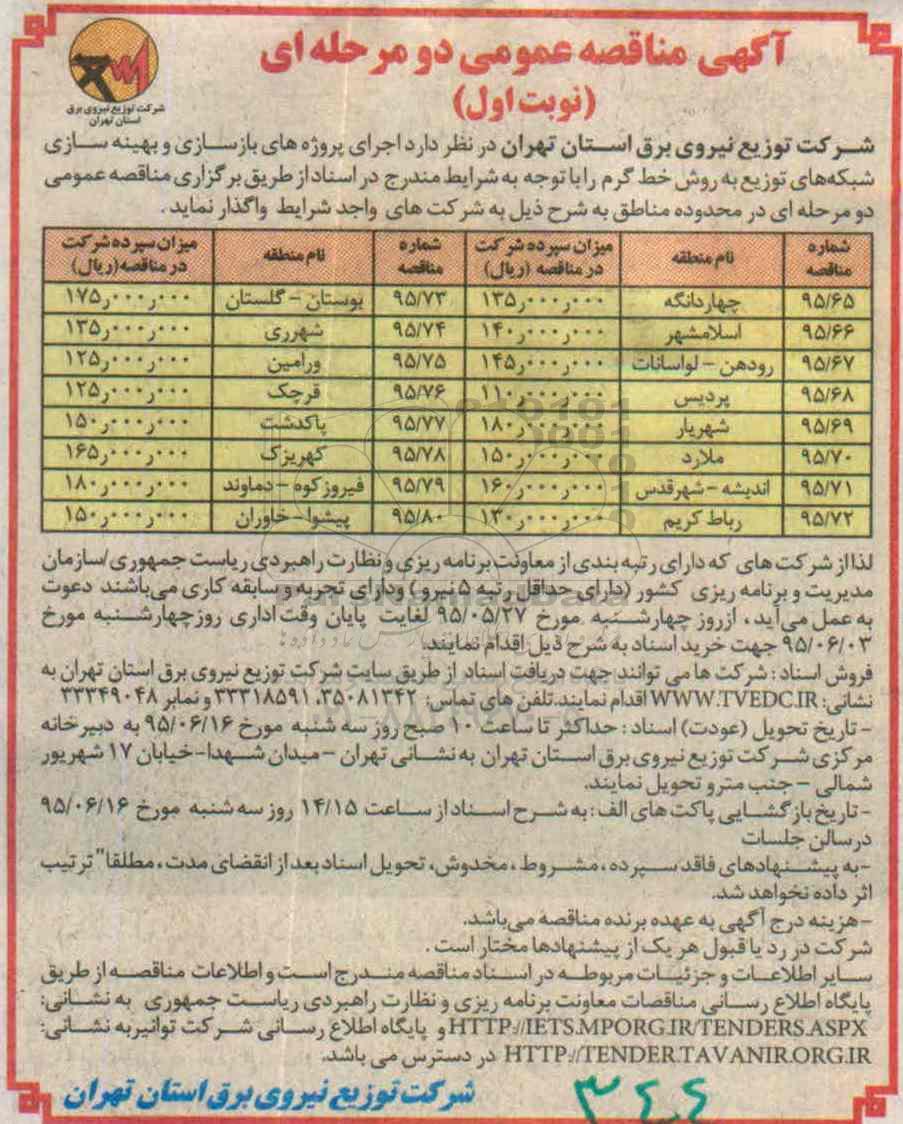 آگهی مناقصه عمومی دو مرحله ای
(نوبت اول)
شرکت توزیع نیروی برق
استان تهران
شرکت توزیع نیروی برق استان تهران در نظر دارد اجرای پروژه های بازسازی و بهینه سازی
شبکه‌های توزیع به روش خط گرم را با توجه به شرایط مندرج در اسناد از طریق برگزاری مناقصه عمومی
دو مرحله ای در محدوده مناطق به شرح ذیل به شرکت های واجد شرایط واگذار نماید.
شماره مناقصه نام منطقه میزان سپرده شرکت در مناقصه (ریال) شماره مناقصه نام منطقه میزان سپرده شرکت در مناقصه(ریال)
۹۵/۶۵ چهاردانگه ۱۳۵٫۰۰۰٫۰۰۰ ۹۵/۷۳ بوستان - گلستان ۱۷۵٫۰۰۰٫۰۰۰
۹۵/۶۶ اسلامشهر ۱۴۰٫۰۰۰٫۰۰۰ ۹۵/۷۴ شهرری ۱۳۵٫۰۰۰٫۰۰۰
۹۵/۶۷ رودهن - لواسانات ۱۴۵٫۰۰۰٫۰۰۰ ۹۵/۷۵ ورامین ۱۲۵٫۰۰۰٫۰۰۰
۹۵/۶۸ پردیس ۱۱۰٫۰۰۰٫۰۰۰ ۹۵/۷۶ قرچک ۱۲۵٫۰۰۰٫۰۰۰
۹۵/۶۹ شهریار ۱۸۰٫۰۰۰٫۰۰۰ ۹۵/۷۷ پاکدشت ۱۵۰٫۰۰۰٫۰۰۰
۹۵/۷۰ ملارد ۱۵۰٫۰۰۰٫۰۰۰ ۹۵/۷۸ کهریزک ۱۶۵٫۰۰۰٫۰۰۰
۹۵/۷۱ اندیشه - شهرقدس ۱۶۰٫۰۰۰٫۰۰۰ ۹۵/۷۹ فیروزکوه - دماوند ۱۸۰٫۰۰۰٫۰۰۰
۹۵/۷۲ رباط کریم ۱۳۰٫۰۰۰٫۰۰۰ ۹۵/۸۰ پیشوا - خاوران ۱۵۰٫۰۰۰٫۰۰۰
لذا از شرکت های که دارای رتبه بندی از معاونت برنامه ریزی و نظارت راهبردی ریاست جمهوری/سازمان
مدیریت و برنامه ریزی کشور (دارای حداقل رتبه ۵ نیرو) و دارای تجربه و سابقه کاری می‌باشند دعوت
به عمل می‌آید، از روز چهارشنبه مورخ ۹۵/۰۵/۲۷ لغایت پایان وقت اداری روز چهارشنبه مورخ
۹۵/۰۶/۰۳ جهت خرید اسناد به شرح ذیل اقدام نمایند.
فروش اسناد: شرکت ها می توانند جهت دریافت اسناد از طریق سایت شرکت توزیع نیروی برق استان تهران به
نشانی: WWW.TVEDC.IR اقدام نمایند. تلفن های تماس: ۳۵۰۸۱۳۴۲، ۳۳۳۱۸۵۹۱ و نمابر ۳۳۳۴۹۰۴۸
- تاریخ تحویل (عودت) اسناد: حداکثر تا ساعت ۱۰ صبح روز سه شنبه مورخ ۹۵/۰۶/۱۶ به دبیرخانه
مرکزی شرکت توزیع نیروی برق استان تهران به نشانی تهران - میدان شهدا - خیابان ۱۷ شهریور
شمالی - جنب مترو تحویل نمایند.
- تاریخ بازگشایی پاکت های الف: به شرح اسناد از ساعت ۱۴/۱۵ روز سه شنبه مورخ ۹۵/۰۶/۱۶
در سالن جلسات
- به پیشنهادهای فاقد سپرده، مشروط، مخدوش، تحویل اسناد بعد از انقضای مدت، مطلقا" ترتیب
اثر داده نخواهد شد.
- هزینه درج آگهی به عهده برنده مناقصه می‌باشد.
شرکت در رد یا قبول هر یک از پیشنهادها مختار است.
سایر اطلاعات و جزئیات مربوطه در اسناد مناقصه مندرج است و اطلاعات مناقصه از طریق
پایگاه اطلاع رسانی مناقصات معاونت برنامه ریزی و نظارت راهبردی ریاست جمهوری به نشانی:
HTTP://IETS.MPORG.IR/TENDERS.ASPX و پایگاه اطلاع رسانی شرکت توانیر به نشانی:
HTTP://TENDER.TAVANIR.ORG.IR در دسترس می باشد.
شرکت توزیع نیروی برق استان تهران
۳۴۴